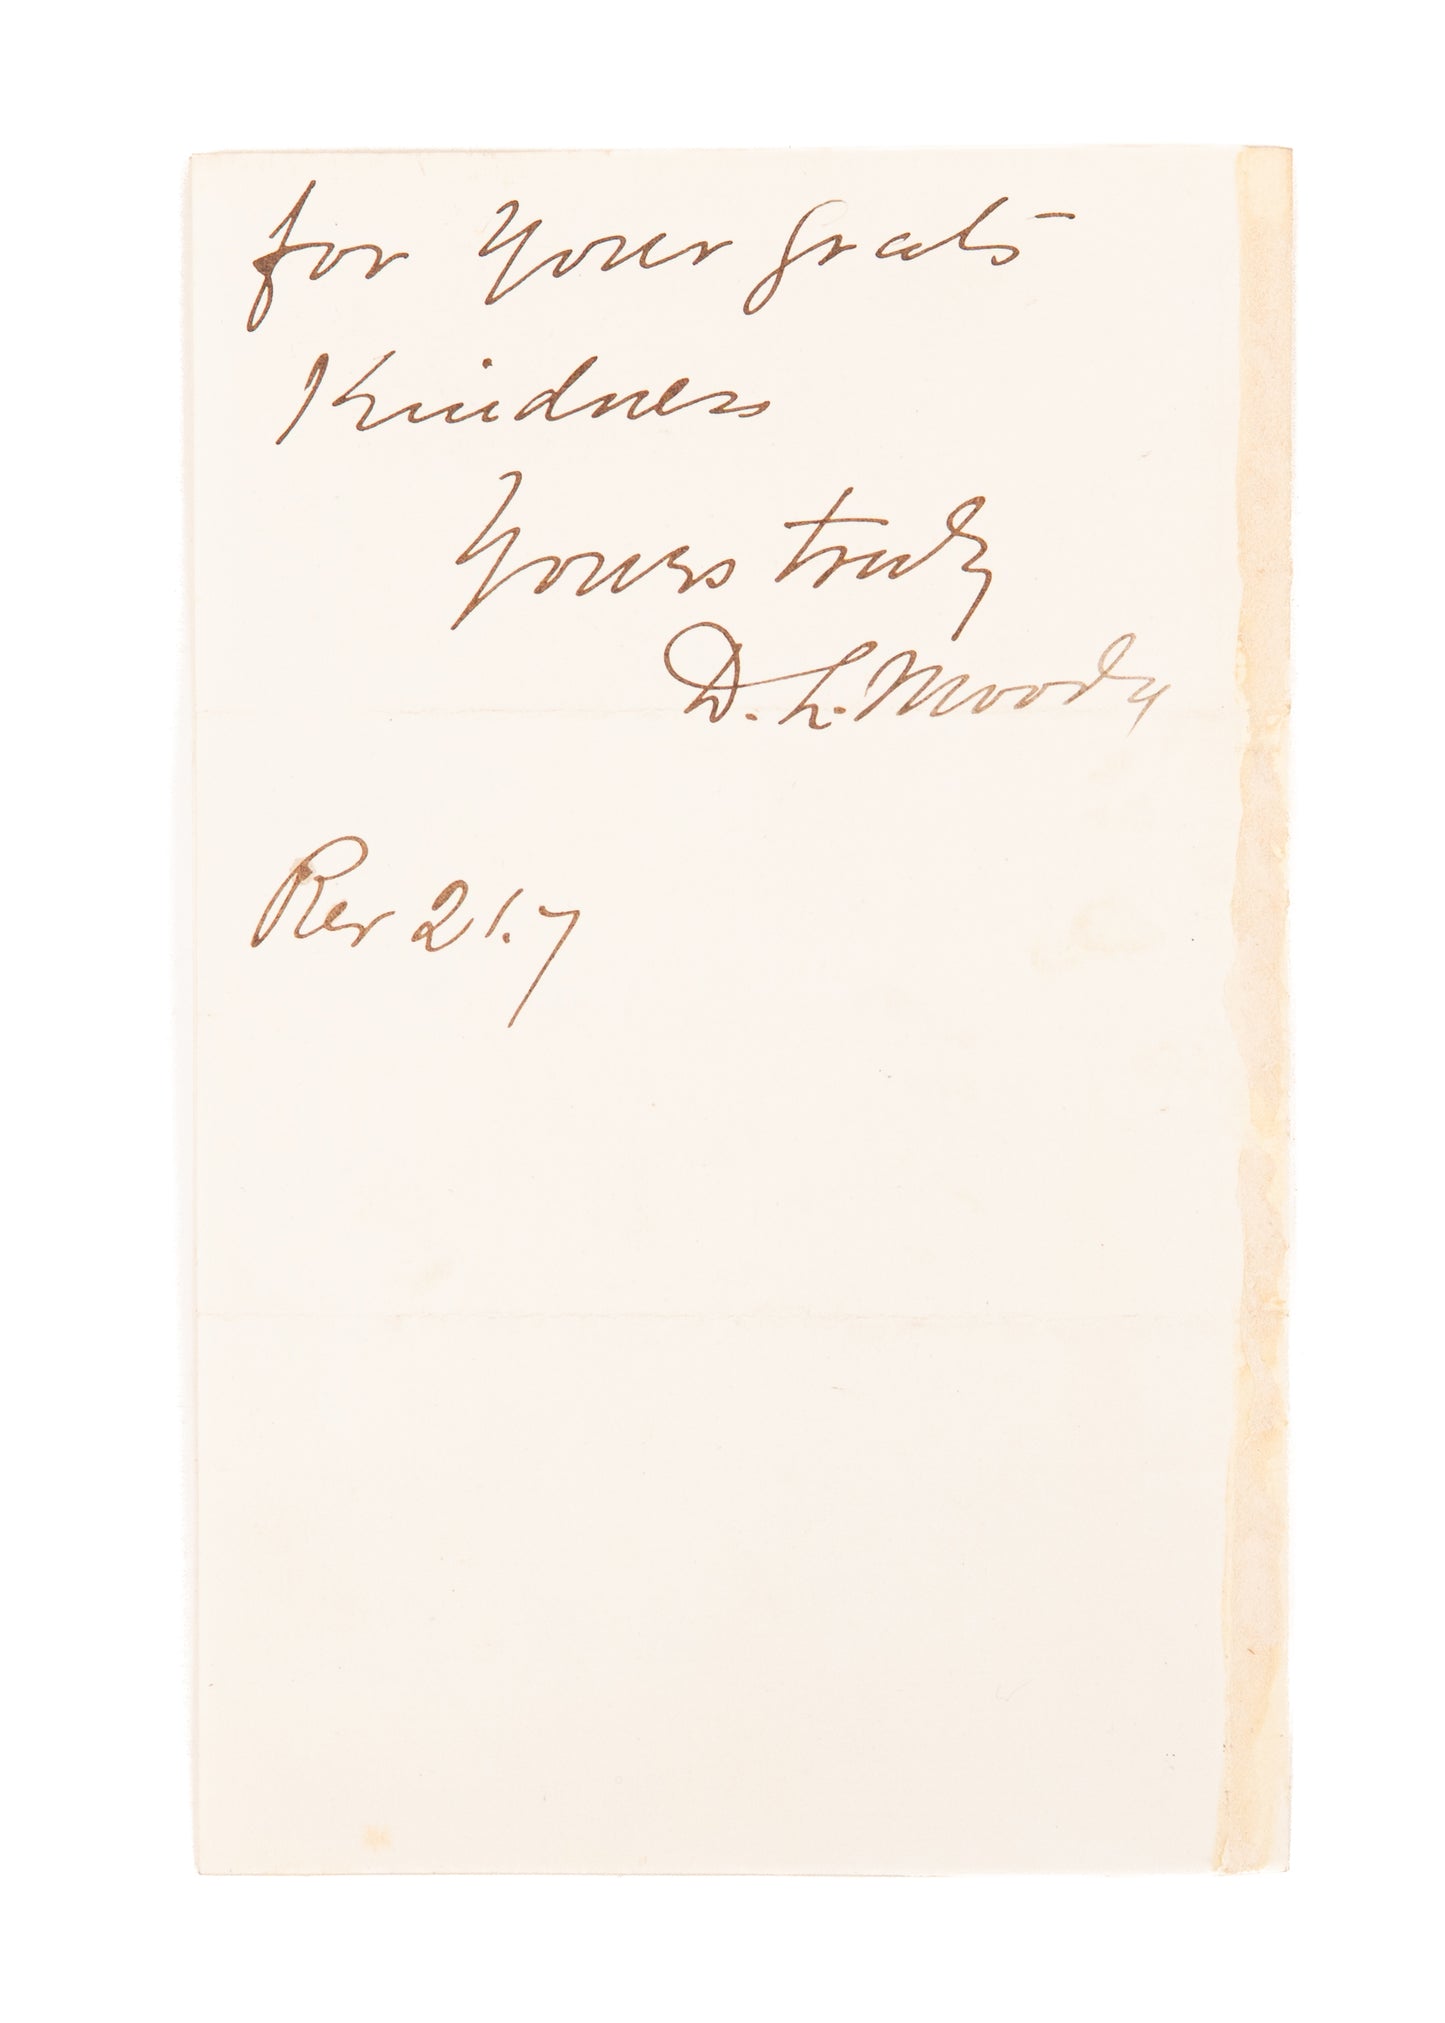 for your great
Kindness
Yours truly
D. L. Moody
Rev 21.7